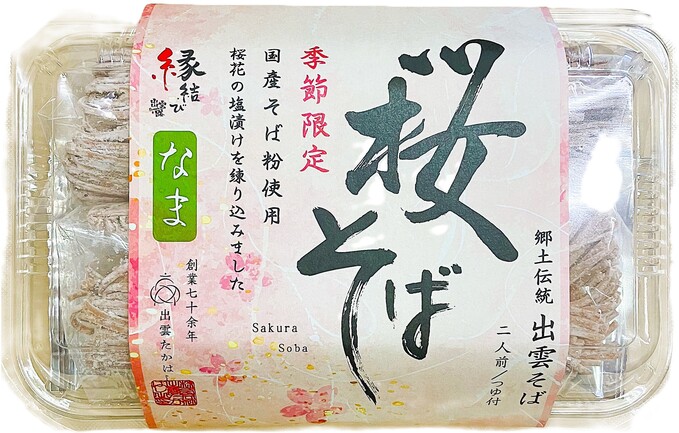 郷土伝統 出雲そば
二人前/つゆ付
桜そば
Sakura
Soba
季節限定
国産そば粉使用
桜花の塩漬けを練り込みました
縁結び
なま
創業七十余年
出雲たかはし